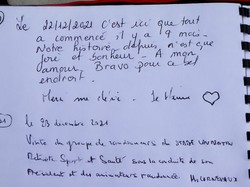 Le 22/12/2021 C'est ici que tout
a commencé il y a 9 mois.
Notre histoire depuis n'est que
joie et bonheur - A mon
amour. Bravo pour ce bel
endroit.
Le 23 décembre 2021
Visite du groupe de randonneurs du STADE
Retraite Sport et Santé sous la conduite de son
Président et des animateurs randonnée